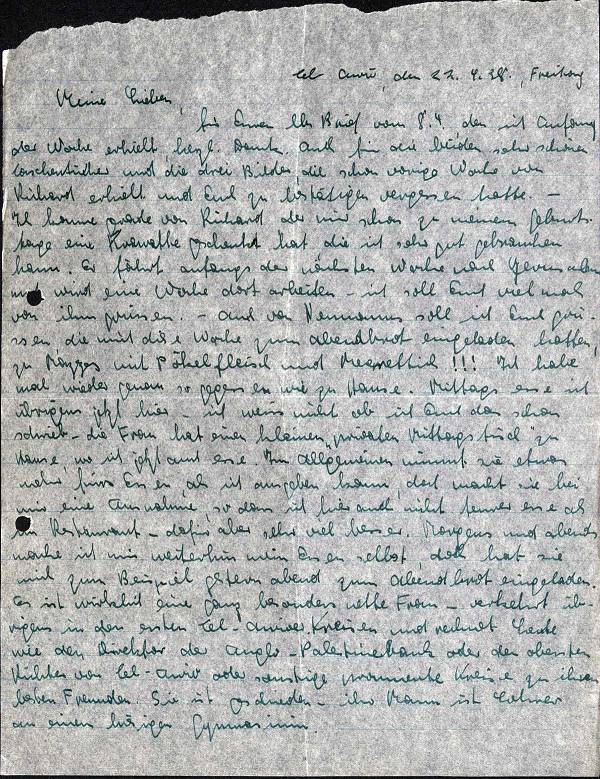 Tel Aviv, den 22.4.38., Freitag
Meine Lieben,
für Euren lb. Brief vom 8.4. den ich Anfang
der Woche erhielt, herzl. Dank. Auch für die beiden sehr schönen
Taschentücher und die drei Bilder, die schon vorige Woche von
Richard erhielt und Euch zu bestätigen vergessen hatte. –
Ich komme grade von Richard der mir schon zu meinem Geburts-
tage eine Krawatte geschenkt hat die ich sehr gut gebrauchen
kann. Er fährt anfangs der nächsten Woche nach Jerusalem
und wird eine Woche dort arbeiten – ich soll Euch viel mal
von ihm grüssen. – Auch von Neumanns soll ich Euch grü-
ssen die mich diese Woche zum Abendbrot eingeladen hatten,
zu mit Pökelfleisch und Meerrettich!!! Ich habe
mal wieder genau so gegessen wie zu Hause. Mittags esse ich
übrigens jetzt hier – ich weiss nicht ob ich Euch das schon
schrieb – die Frau hat einen kleinen "privaten Mittagstisch" zu
Hause, wo ich jetzt auch esse. Im allgemeinen nimmt sie etwas
mehr fürs Essen, als ich ausgeben kann, doch macht sie bei
mir eine Ausnahme, so dass ich hier auch nicht teurer esse als
im Restaurant – dafür aber sehr viel besser. Morgens und abends
mache ich mir weiterhin mein Essen selbst, doch hat sie
mich zum Beispiel gestern abend zum Abendbrot eingeladen.
Es ist wirklich eine ganz besonders nette Frau – verkehrt üb-
rigens in den ersten Tel-Aviver Kreisen und rechnet Leute
wie den Direktor der Anglo-Palestinebank oder den obersten
Richter von Tel-Aviv oder sonstige prominente Kreise zu ihren
besten Freunden. Sie ist geschieden – ihr Mann ist Lehrer
an einem hiesigen Gymnasium.